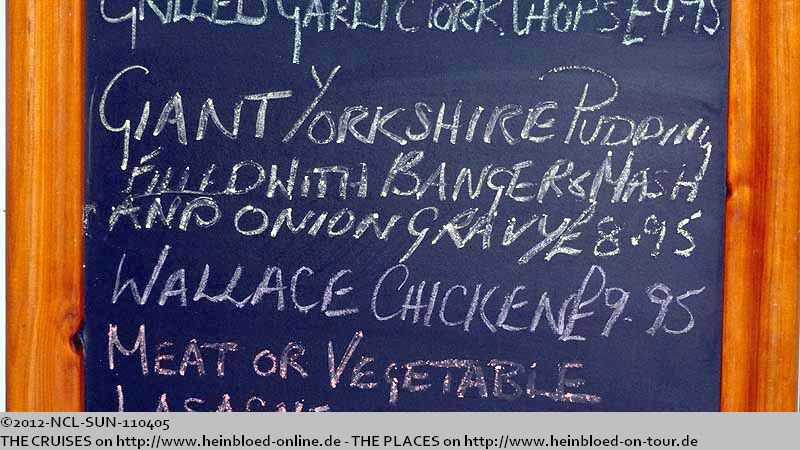 GRILLED GARLIC PORK CHOPS £9.95
GIANT YORKSHIRE PUDDING
FILLED WITH BANGER & MASH
AND ONION GRAVY £8.95
WALLACE CHICKEN £9.95
MEAT OR VEGETABLE
LASAGNE
©2012-NCL-SUN-110405
THE CRUISES on http://www.heinbloed-online.de - THE PLACES on http://www.heinbloed-on-tour.de